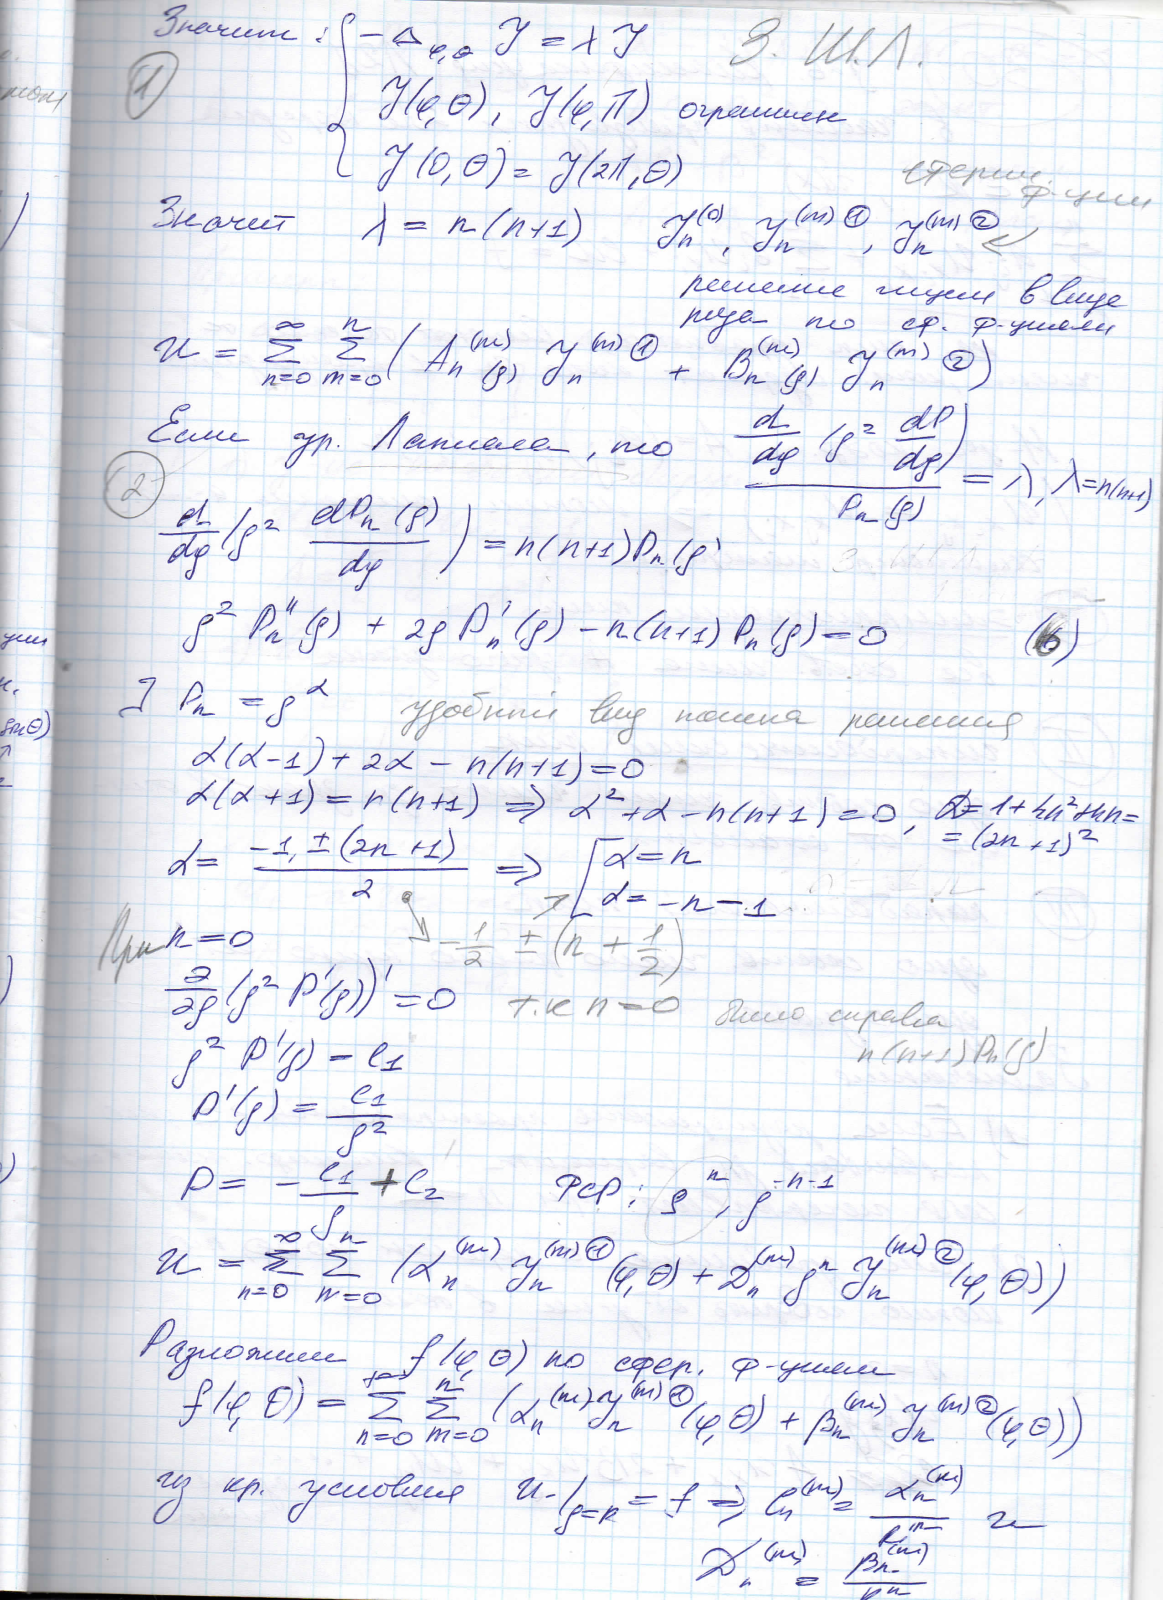 Значит: { -Δ_{φ,θ} Y = λ Y З. Ш.Л.
① Y(φ,0), Y(φ,π) ограничен
Y(0,θ) = Y(2π,θ)
сферич. ф-ции
Значит λ = n(n+1) Y_n^{(0)}, Y_n^{(m)①}, Y_n^{(m)②}
решение ищем в виде
ряда по сф. ф-циям
u = Σ_{n=0}^{∞} Σ_{m=0}^{n} (A_n^{(m)}(ρ) Y_n^{(m)①} + B_n^{(m)}(ρ) Y_n^{(m)②})
Если ур. Лапласа, то \frac{\frac{d}{dρ}(ρ² \frac{dP}{dρ})}{P_n(ρ)} = λ, λ = n(n+1)
② \frac{d}{dρ}(ρ² \frac{dP_n(ρ)}{dρ}) = n(n+1)P_n(ρ)
ρ² P_n''(ρ) + 2ρ P_n'(ρ) - n(n+1) P_n(ρ) = 0 (6)
] P_n = ρ^α удобный вид поиска решения
α(α-1) + 2α - n(n+1) = 0
α(α+1) = n(n+1) ⇒ α² + α - n(n+1) = 0, D = 1 + 4n² + 4n =
= (2n+1)²
α = \frac{-1 ± (2n+1)}{2} ⇒ [ α = n
α = -n-1
При n = 0 -\frac{1}{2} ± (n + \frac{1}{2})
\frac{∂}{∂ρ}(ρ² P'(ρ))' = 0 т.к n = 0 было справа
n(n+1)P_n(ρ)
ρ² P'(ρ) = C_1
P'(ρ) = \frac{C_1}{ρ²}
P = -\frac{C_1}{ρ} + C_2 ФСР: ρ^n, ρ^{-n-1}
u = Σ_{n=0}^{∞} Σ_{m=0}^{n} (α_n^{(m)} Y_n^{(m)①}(φ,θ) + D_n^{(m)} ρ^n Y_n^{(m)②}(φ,θ))
Разложим f(φ,θ) по сфер. ф-циям
f(φ,θ) = Σ_{n=0}^{+∞} Σ_{m=0}^{n} (α_n^{(m)} Y_n^{(m)①}(φ,θ) + β_n^{(m)} Y_n^{(m)②}(φ,θ))
из кр. условия u|_{ρ=R} = f ⇒ C_n^{(m)} = \frac{α_n^{(m)}}{R^n} и
D_n^{(m)} = \frac{β_n^{(m)}}{R^n}